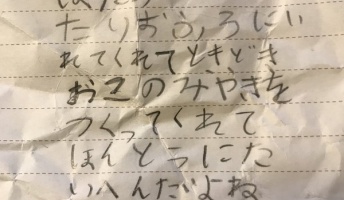 たりおふろにい
れてくれてときどき
おこのみやきを
つくってくれて
ほんとうにた
いへんだよね